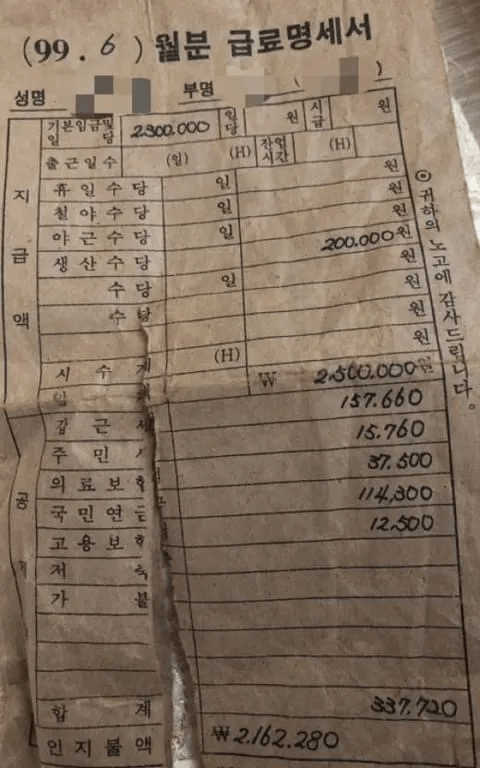 (99. 6) 월분 급료명세서
성명 부명 ( )
기본임금및 일당 2300.000 일당 원 시급 원
출근일수 (일) (H) 잔업시간 (H)
휴일수당 일 원
철야수당 일 원
야근수당 일 원
생산수당 200.000원
수당 일 원
수당 원
원
시수계 (H) ₩ 2.500.000원
갑근세 157.660
주민 15.760
의료보험 37.500
국민연금 114.300
고용보험 12.500
저축
가불
합계 337.720
인지불액 ₩2.162.280
지급액
공
◎ 귀하의 노고에 감사드립니다.